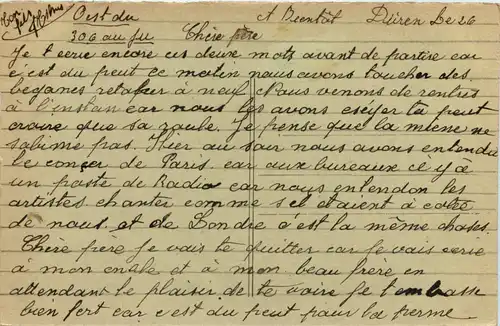 Bon
fils
Oest du A Bientôt Düren Le 26
306 au ju Chère frère
Je t ecrie encore ces deux mots avant de partire car
c'est du peut ce matin nous avons toucher des
beganes retaper à neuf Nous venons de rentres
à l'instan car nous les avons eséyer ta peut
craire que sa roule. Je pense que la mienne ne
sabime pas. Hier au soir nous avons entendu
le conçer de Paris car aux bureaux il y à
un poste de Radio car nous entendon les
artistes chanter comme s el étaient à coter
de nous et de Londre c'est la même choses.
Chère frère je vais te quitter car je vais ecrie
à mon oncle et à mon beau frere en
attendant le plaisir de te voire je t embrasse
bien fort car c'est du peut pour la perme